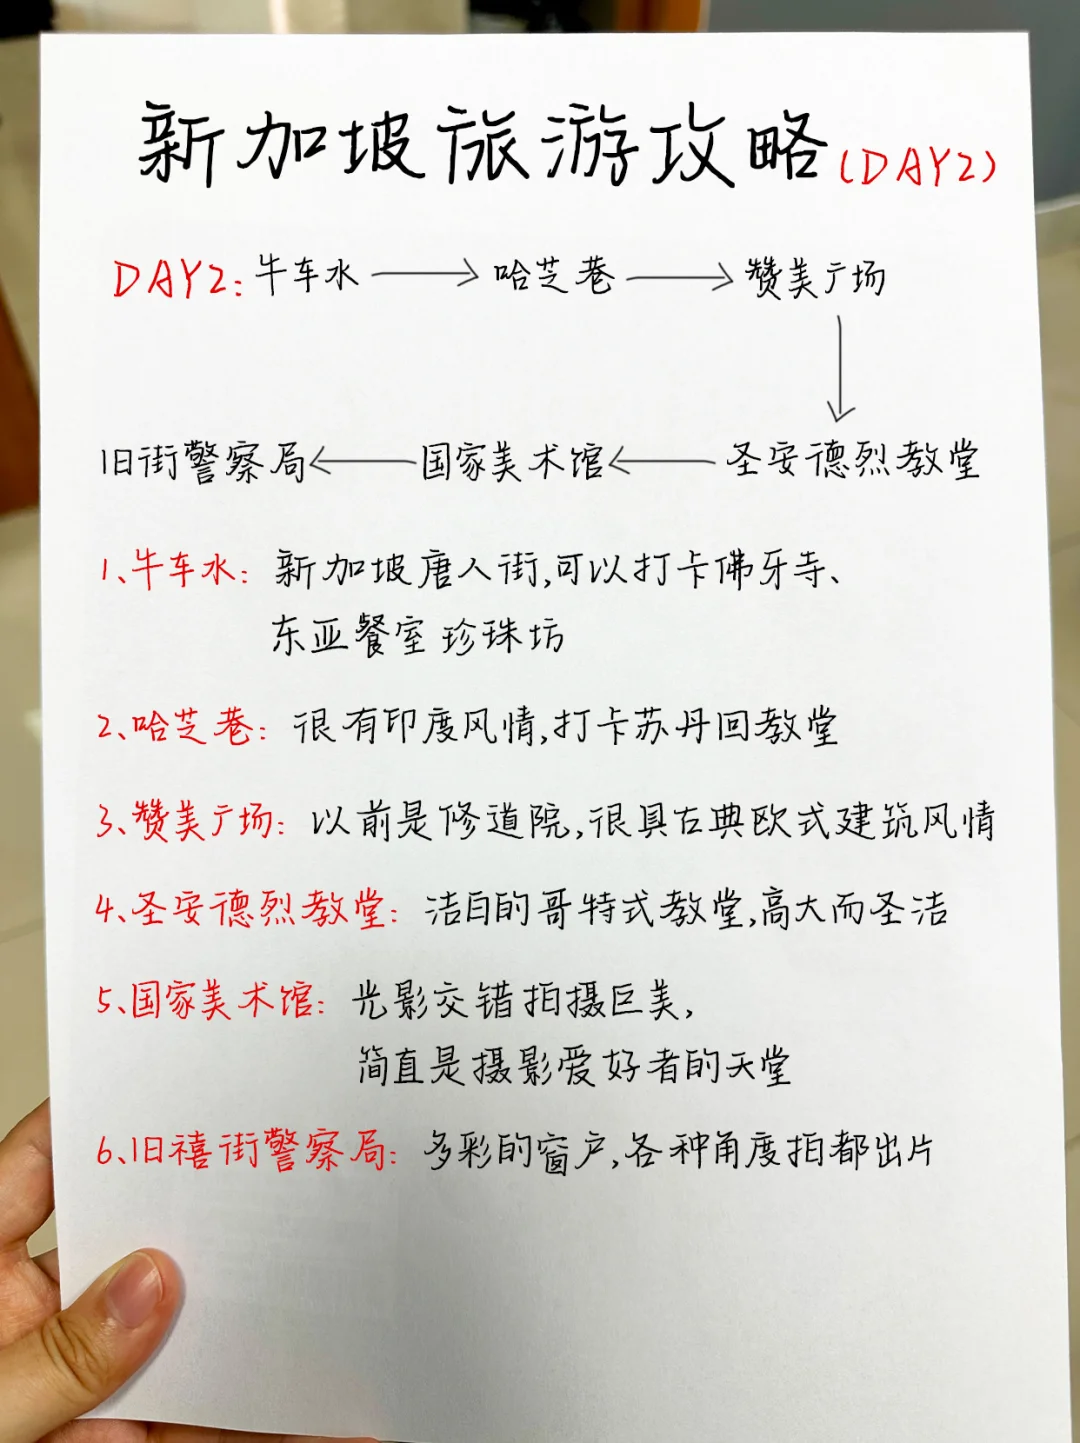 新加坡旅游攻略(DAY2)
DAY2:牛车水→哈芝巷→赞美广场
↓
旧街警察局←国家美术馆←圣安德烈教堂
1、牛车水：新加坡唐人街,可以打卡佛牙寺、
东亚餐室 珍珠坊
2、哈芝巷：很有印度风情,打卡苏丹回教堂
3、赞美广场：以前是修道院,很具古典欧式建筑风情
4、圣安德烈教堂：洁白的哥特式教堂,高大而圣洁
5、国家美术馆：光影交错拍摄巨美,
简直是摄影爱好者的天堂
6、旧禧街警察局：多彩的窗户,各种角度拍都出片